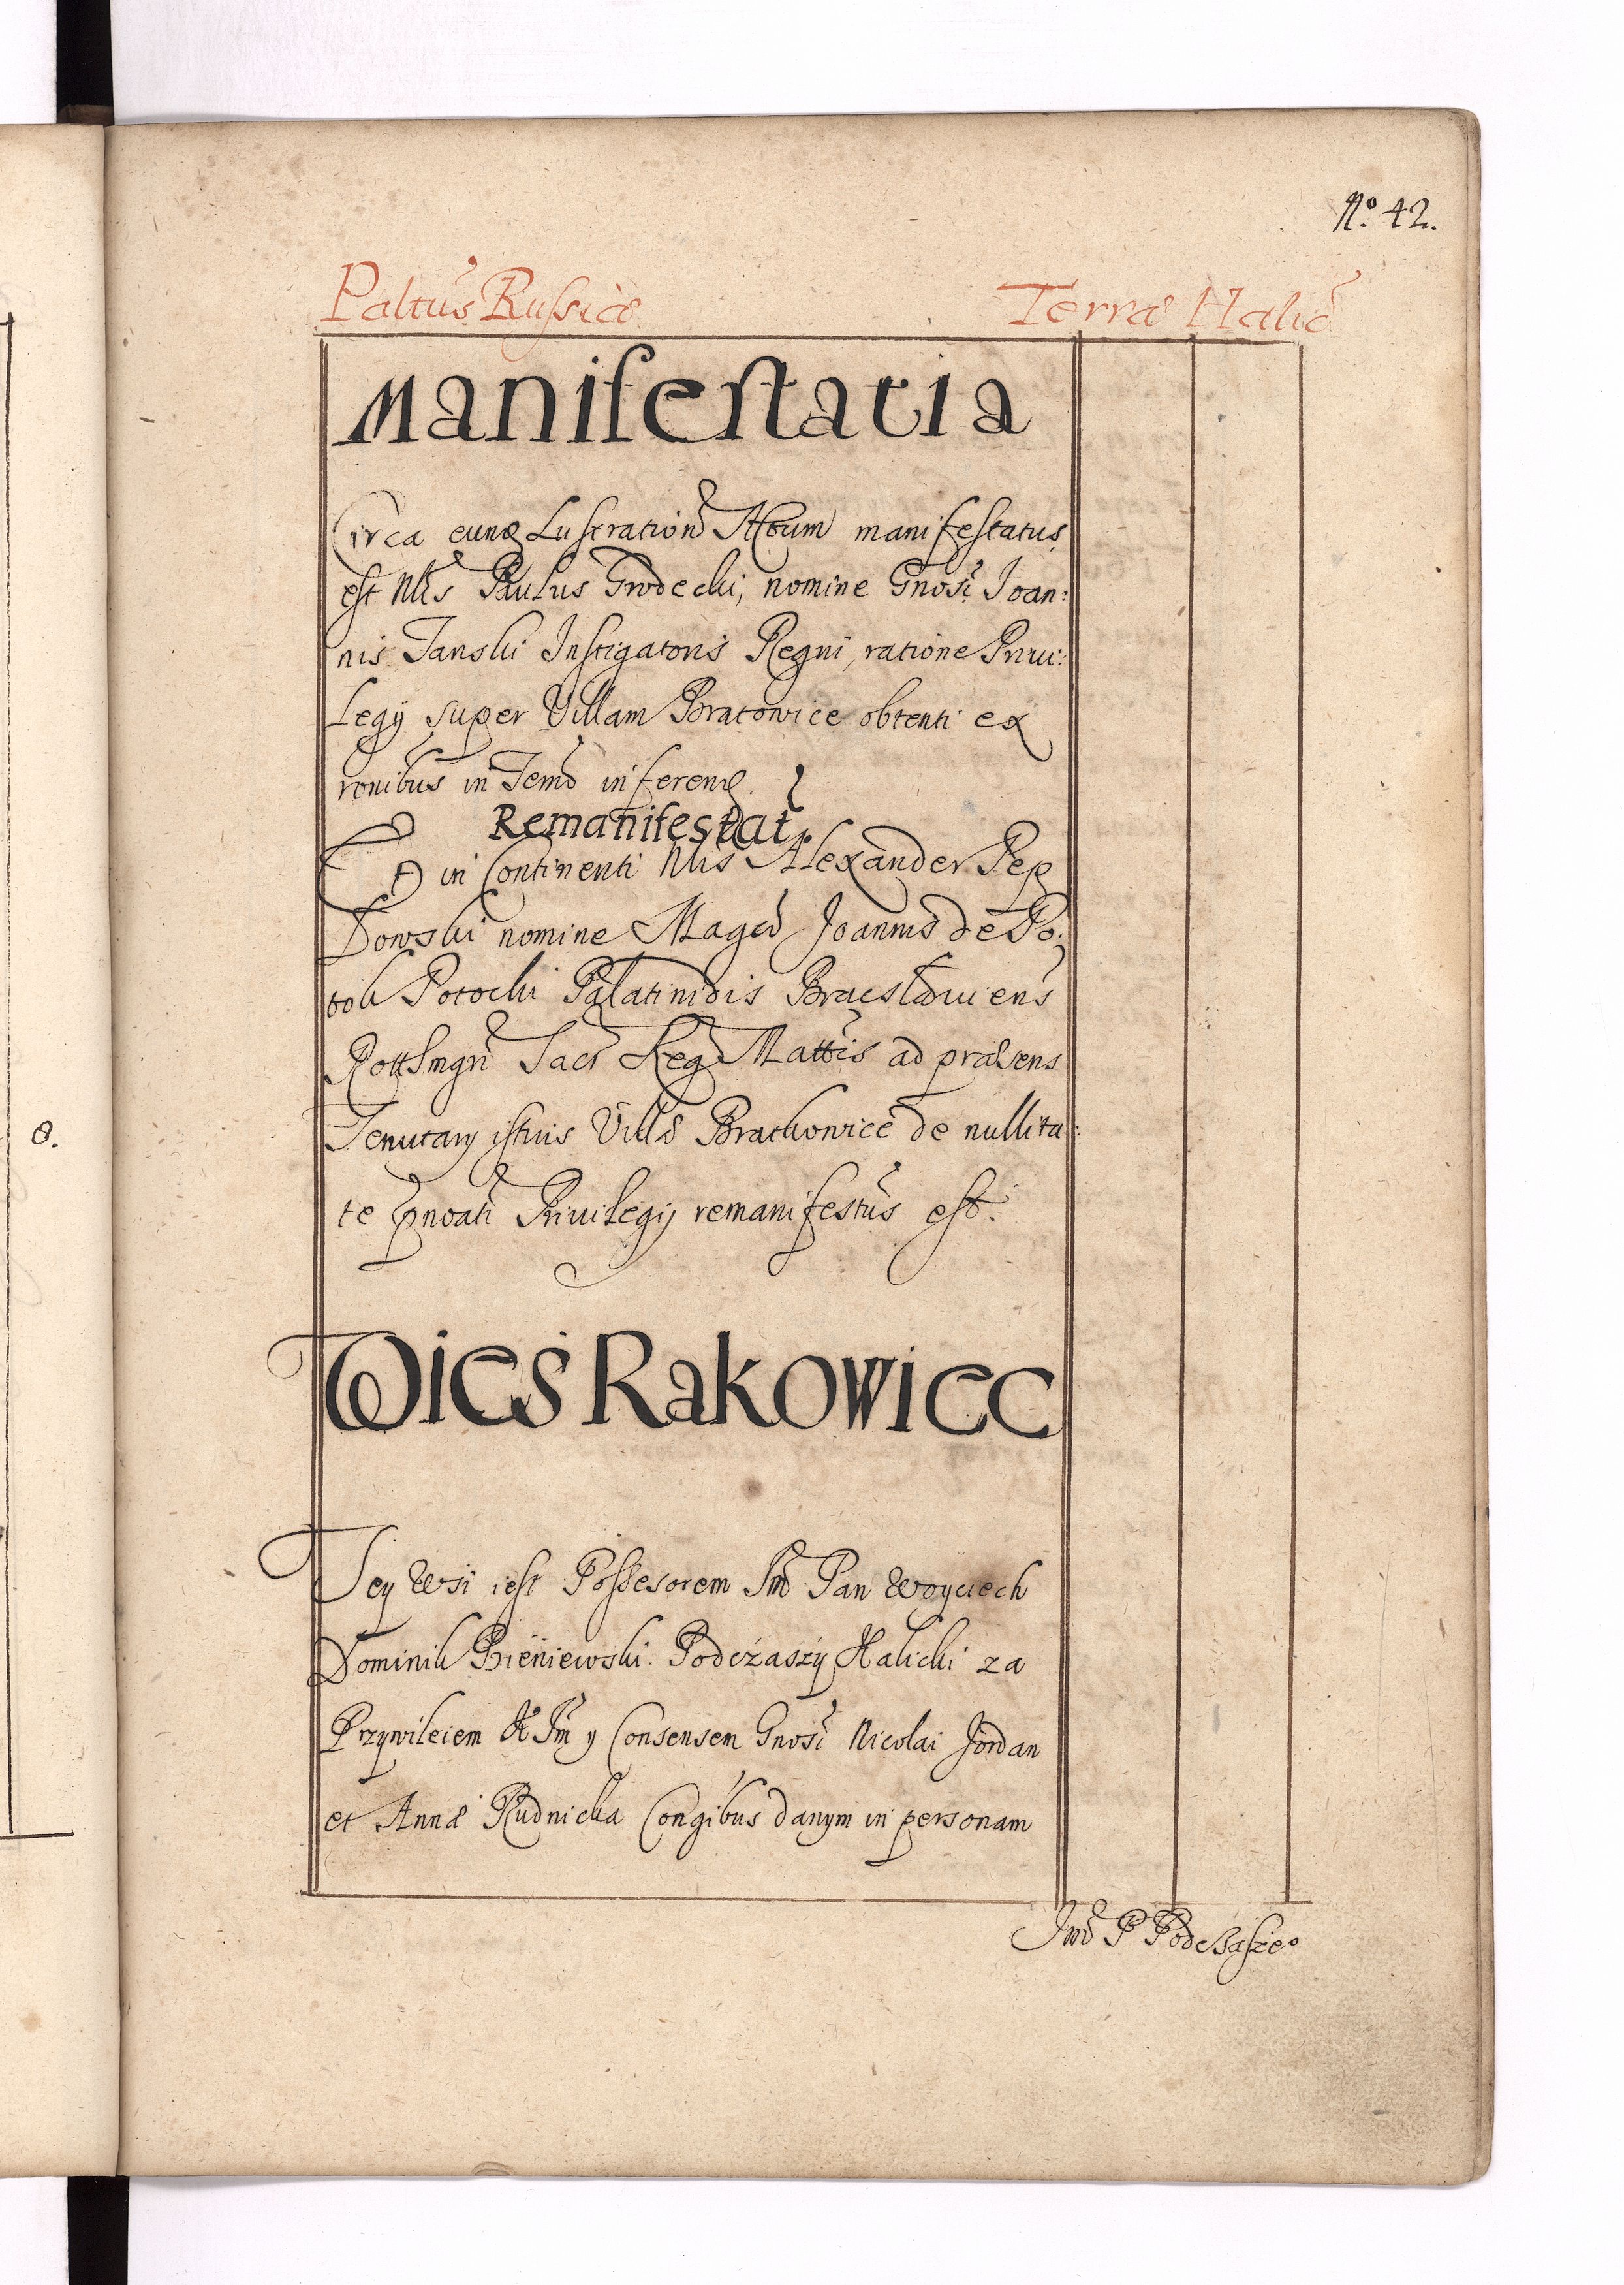 No. 42.
Paltūs Russiæ Terræ Halic̄
Manifestatia
Circa eunq Lustration̄ Actum manifestatus
est Nlīs Paulus Grodecki, nomine Gnosī Joan:
nis Tanski Instigatoris Regni, ratione Privi:
legÿ super Villam Bratowice obtenti ex
ronibus in Temō inferenq.
Remanifestat̄
Et in Continenti Nlis Alexander Pep
Dowski nomine Magcī Joannis de Po:
tok Potocki Palatinidis Bracslaviens
Rottmgrī Sacr̄ Reg Mattis ad præsens
Tenutarÿ istius Villæ Bratkowice de nullita:
te pnoatī Privilegij remanifestūs est.
Wies Rakowice
Tey Wsi iest Possesorem Jmć Pan Woyciech
Dominik Bieniewski Podczaszy Halicki za
Przywileiem K Jm y Consensem Gnosī Nicolai Jordan
et Annæ Rudnicka Congibus danym in personam
Jmć P Podczaszeº
8.